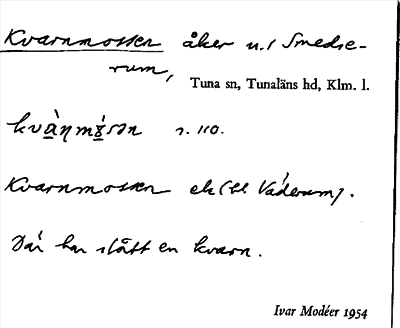 Kvarnmossen åker u./ Smedse-
rum,
Tuna sn, Tunaläns hd, Klm. l.
kvà̱ŋmó̱sən s. 110.
Kvarnmossen ek (bl Väderum).
Där har stått en kvarn.
Ivar Modéer 1954